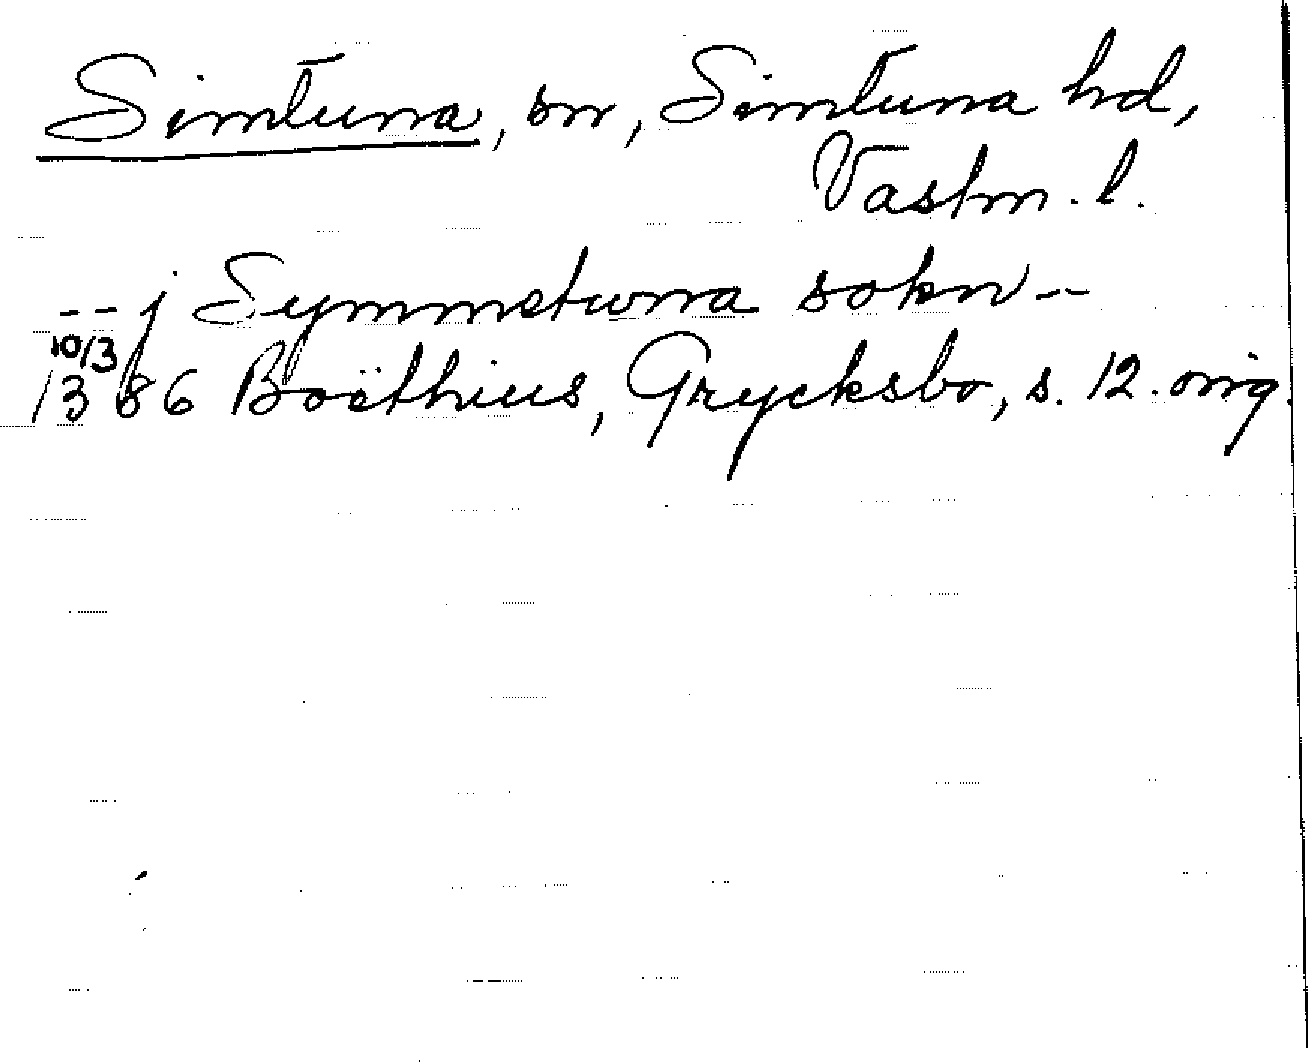 Simtuna, sn, Simtuna hd,
Västm. l.
-- j Symmetuna sokn --
10/3
1386 Boëthius, Grycksbo, s. 12. orig.